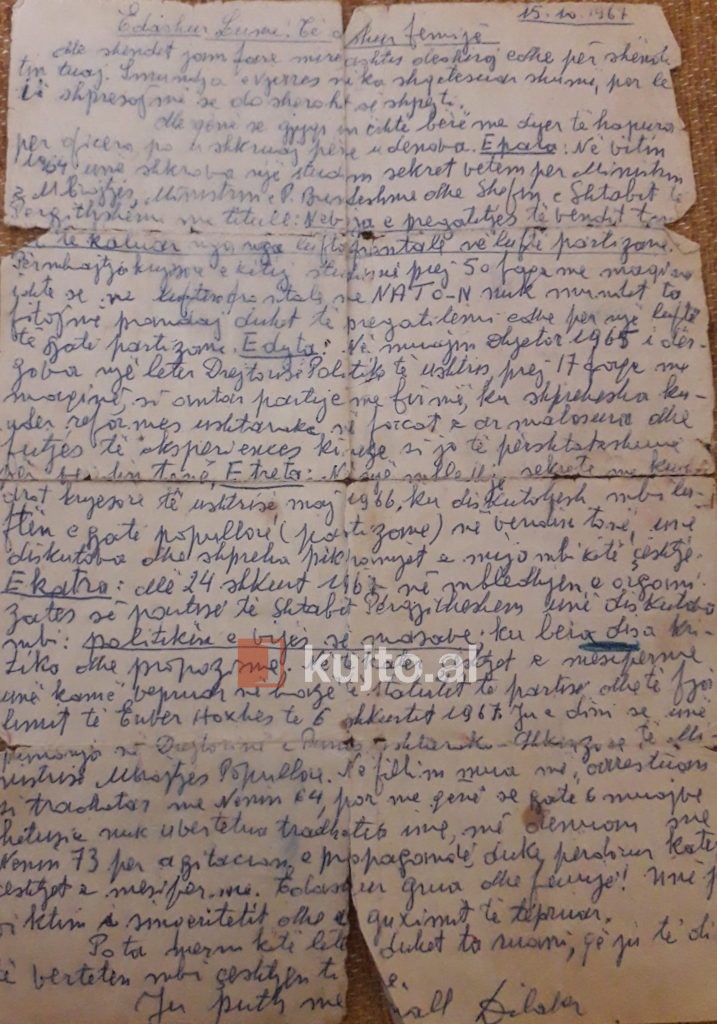 15.10.1967
E dashur Lumi! Të dashur femijë
Me shëndet jam fare mirë ashtu dëshiroj edhe për shënde
tin tuaj. Smundja e vjerres në ka shqetesuar shumë, por le
të shpresojmë se do sherohet së shpejti.
Me gene se gjyqi im është bërë me dyer të hapura
per oficero po u shkruaj perse u denova. E para: Në vitin
1964 unë shkrova një studim sekret vetem per Ministrin
e Mbrojtjes, Ministrin e P. Brendeshme dhe Shefin e Shtabit të
Pergjithshem me titull: Nevoja e pregatitjes të vendit ton
për të kaluar nga lufta frontale në luftë partizane.
Përmbajtja kryesore e ketij studimi prej 50 faqe me maqina
është se në luftën frontale me NATO-N nuk mundet ta
fitojmë prandaj duhet të pregatitemi edhe për një luftë
të gjatë partizane. E dyta: Në muajin dhjetor 1965 i dër-
gova një leter Drejtorisë Politike të ushtris, prej 17 faqe me
maqinë, si antar partije me firmë, ku shprehesha ku-
nder reformes ushtarake në forcat e armatosura dhe
futjes të eksperiences kineze si jo të përshtatshme
për vendin tonë. E treta: Në një mbledhje sekrete me kua-
drot kryesore të ushtrisë, maj 1966, ku diskutohesh mbi lu-
ftën e gjatë popullore (partizane) në vendin tonë, unë
diskutova dhe shpreha pikpamjet e mija mbi kitë çështje.
E katra: Më 24 shkurt 1967 në mbledhjen e organi-
zates së partisë të Shtabit Përgjitheshem unë diskutova
mbi: politikën e vijës së masave. ku bëra disa kri-
tika dhe propozime. Të katër çështjet e mesiperme
unë kamë vepruar në bazë të statutit të partisë dhe të fja-
limit të Enver Hoxhës të 6 shkurtit 1967. Ju e dini se unë
punonja në Drejtorinë e ushtarake - Shkencore të Mi-
nistrisë Mbrojtjes Popullore. Në fillim mua më arrestuan
si tradhetar me Nenin 64, por me genë se gjate 6 muajve
hetuesia nuk u vertetua tradhetia ime, më denuan me
Nenin 73 per agitacion e propagandë, duke perdorur kater
çështjet e mesiperme. E dashur grua dhe femijë! Unë j
viktim i sinqeritetit dhe guximit të tepruar.
Po ta merrni kitë letër duhet ta ruani, që ju të di
të verteten mbi çështjen ti
Ju puth me mall Dilaver
kujto.al